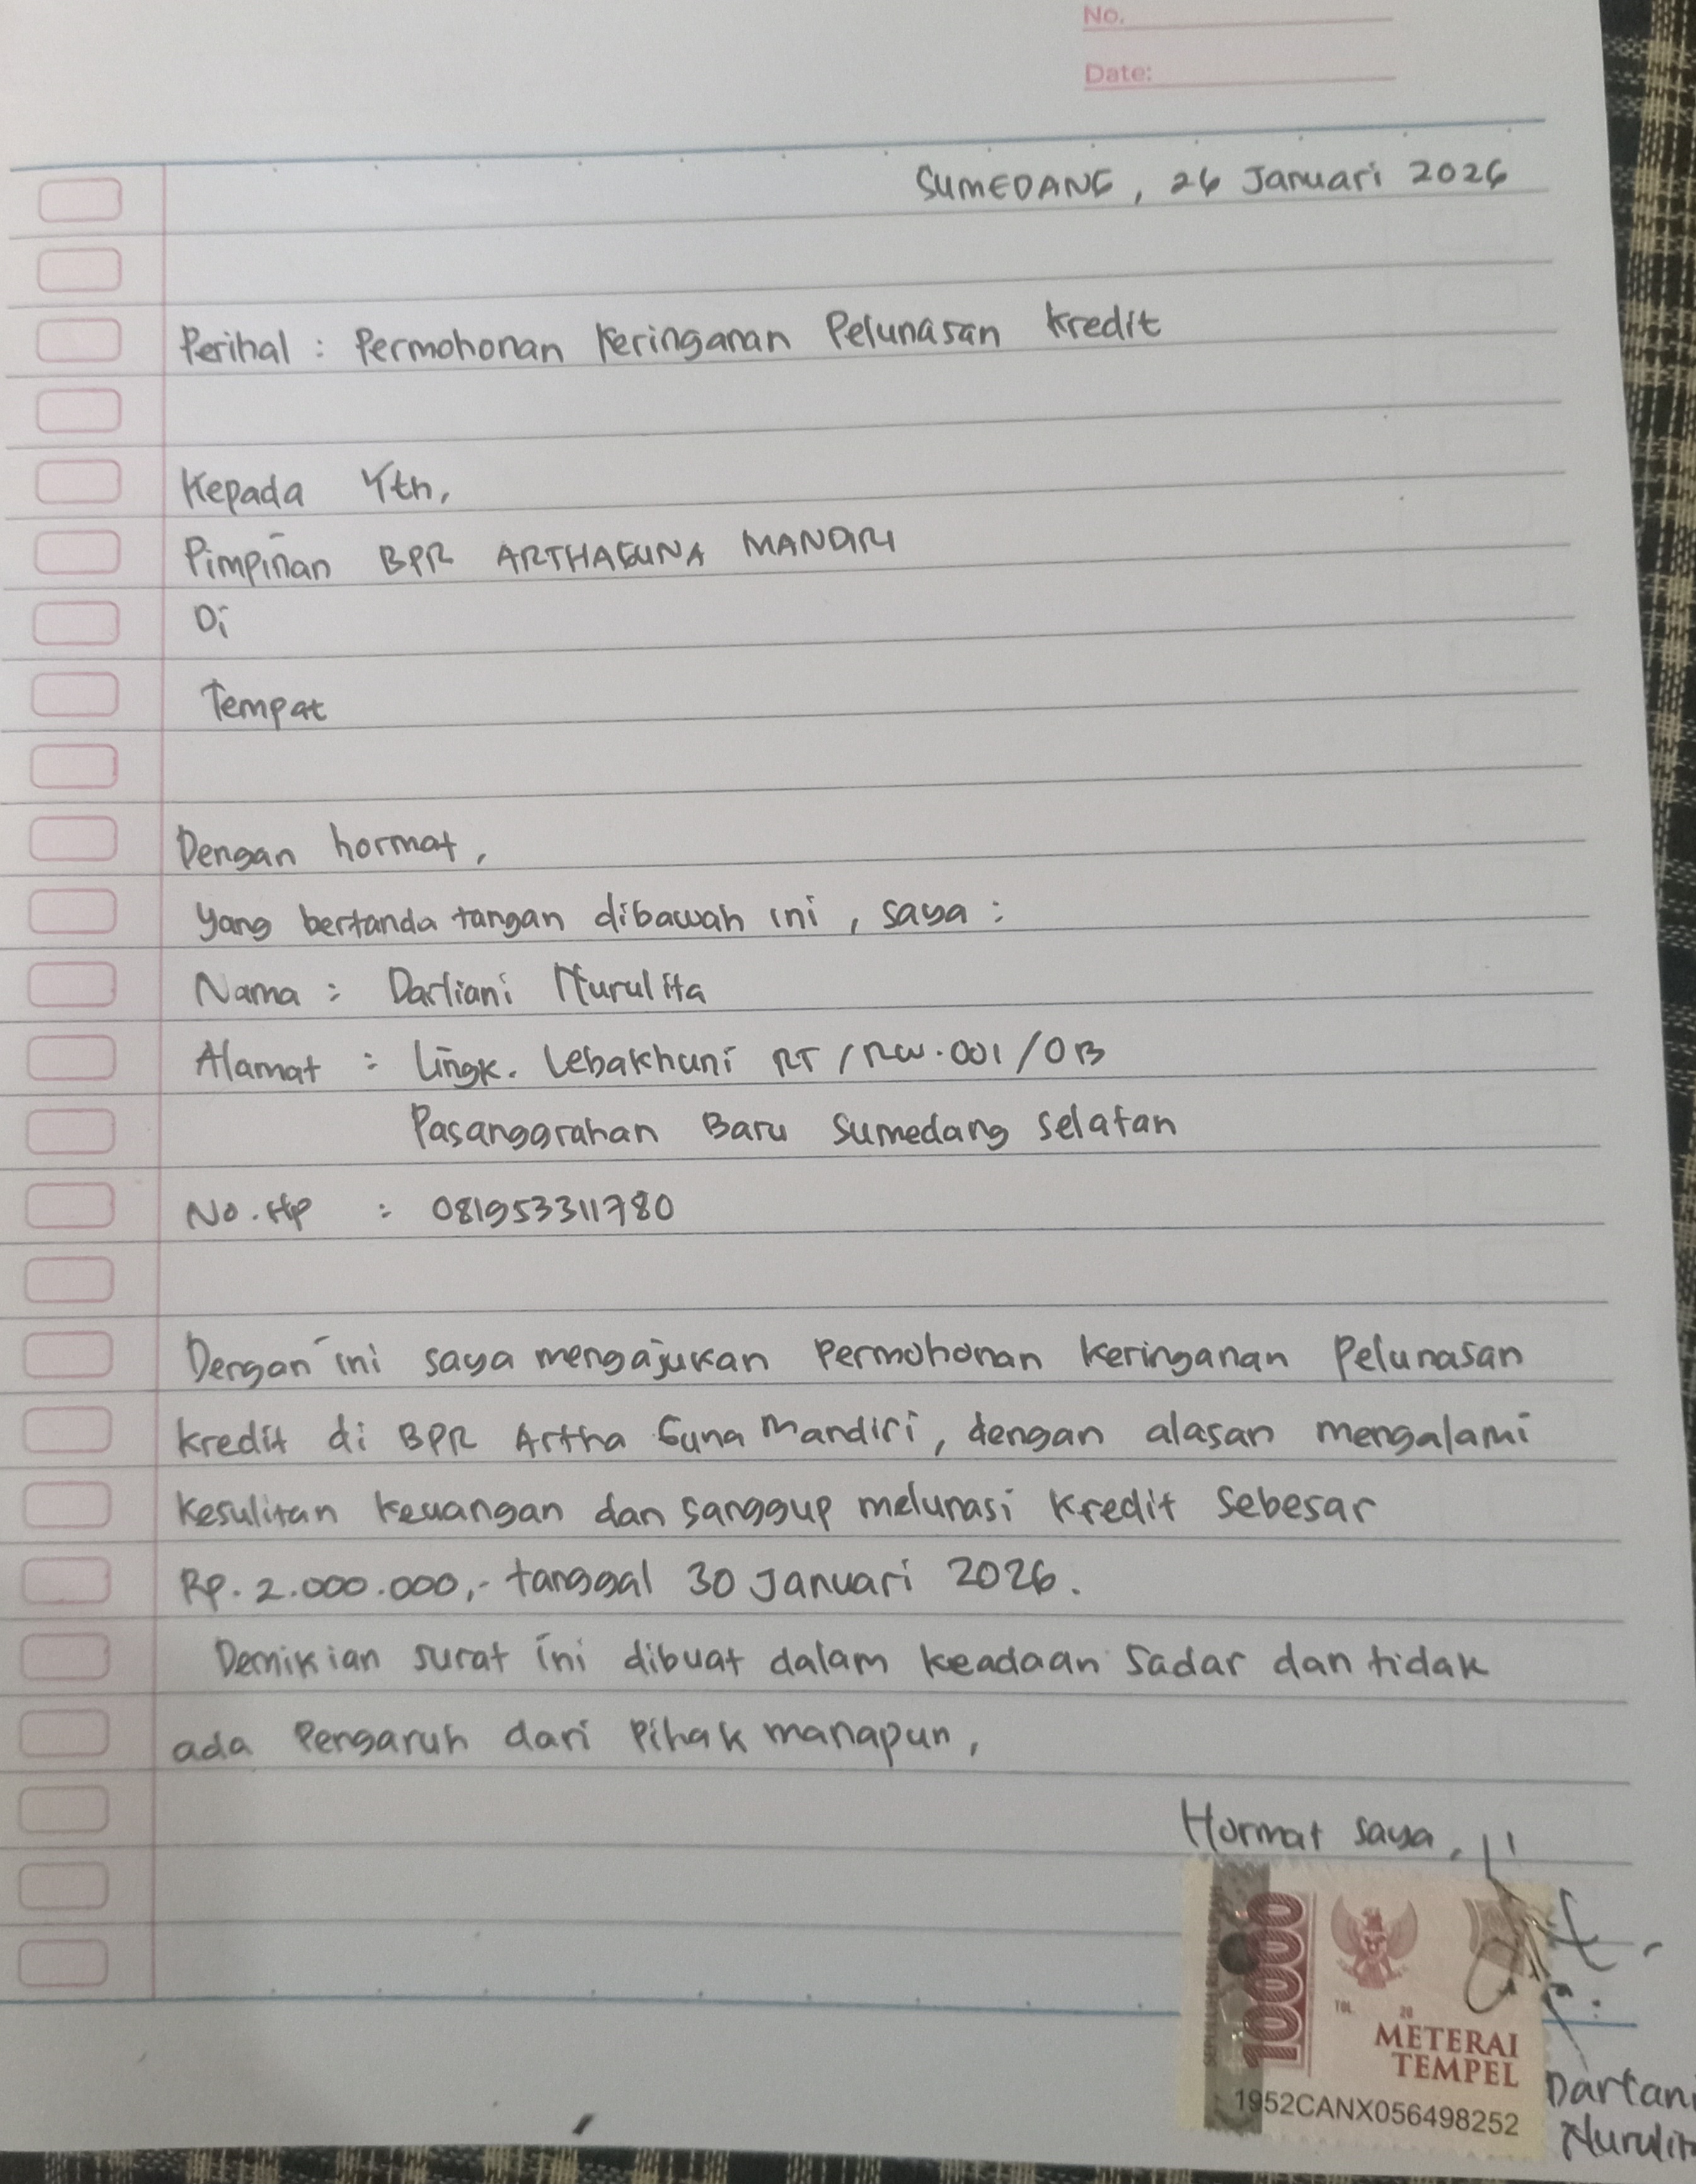 No.
Date:
SUMEDANG, 26 Januari 2026
Perihal : Permohonan Keringanan Pelunasan Kredit
Kepada Yth,
Pimpinan BPR ARTHAGUNA MANDIRI
Di
Tempat
Dengan hormat,
Yang bertanda tangan dibawah ini, saya :
Nama : Darliani Nurulita
Alamat : Lingk. Lebakhuni RT/RW.001/013
Pasanggrahan Baru Sumedang Selatan
No.Hp : 081953311780
Dengan ini saya mengajukan Permohonan Keringanan Pelunasan
Kredit di BPR Artha Guna Mandiri, dengan alasan mengalami
Kesulitan Keuangan dan sanggup melunasi Kredit Sebesar
Rp. 2.000.000,- tanggal 30 Januari 2026.
Demikian surat ini dibuat dalam keadaan Sadar dan tidak
ada Pengaruh dari Pihak manapun,
Hormat saya,
10000
TGL. 20
METERAI
TEMPEL
1952CANX056498252